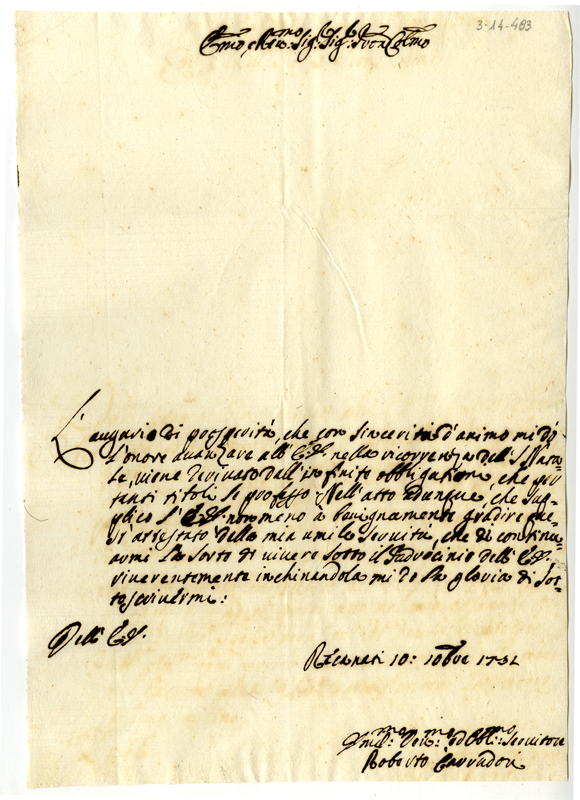 3-14-483
Emo, e Rmo: Sig:r Sig:r Pron Colmo
L'augurio di prosperità, che con sincerità d'animo mi dò
l'onore avanzare all' E.V. nella ricorrenza del S. Nata=
le, viene derivato dall'infinite obbligazioni, che per
tanti titoli le professo. Nell'atto adunque, che sup=
plico l' E.V. non meno à benignamente gradire que=
st' attestato della mia umile servitù, che di continu=
armi la sorte di vivere sotto il Padrocinio dell' E.V.
riverentemente inchinandola mi do la gloria di sot=
toscrivermi:
Dell' E.V.
Recanati 10: Xbre 1732
Umil:mo Dev:mo ed Obl:mo Servitore
Roberto Carradori